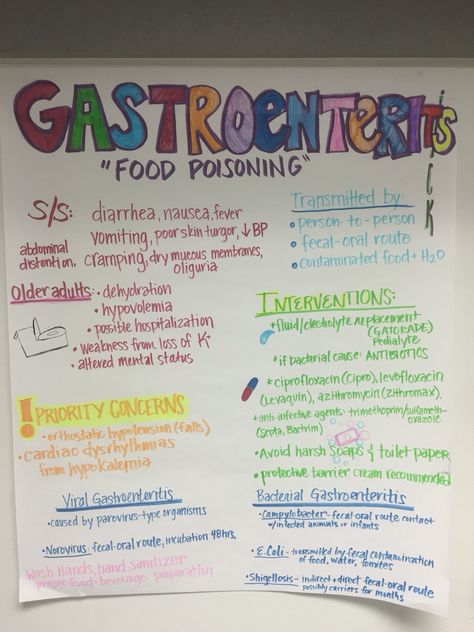 GASTROENTERITIS
ICK
"FOOD POISONING"
S/S: diarrhea, nausea, fever
vomiting, poor skin turgor, ↓ BP
abdominal distention, cramping, dry mucous membranes,
oliguria
Older adults: • dehydration
• hypovolemia
• possible hospitalization
• weakness from loss of K⁺
• altered mental status
! PRIORITY CONCERNS
• orthostatic hypotension (falls)
• cardiac dysrhythmias
from hypokalemia
Viral Gastroenteritis
• caused by parovirus-type organisms
• Norovirus: fecal-oral route, incubation 48hrs,
Wash Hands, hand sanitizer
proper food + beverage preparation
Transmitted by:
• person-to-person
• fecal-oral route
• contaminated food + H2O
INTERVENTIONS:
* fluid/electrolyte replacement
(GATORADE)
Pedialyte
* if bacterial cause: ANTIBIOTICS
* ciprofloxacin (Cipro), levofloxacin
(Levaquin), azithromycin (Zithromax),
* anti-infective agents: trimethoprim/sulfameth-
oxazole
(Septa, Bactrim)
• Avoid harsh soaps & toilet paper
• protective barrier cream recommended
Bacterial Gastroenteritis
• Campylobacter- fecal-oral route contact
w/infected animals or infants
• E.Coli - transmitted by fecal contamination
of food, water, fomites
• Shigellosis - indirect + direct fecal-oral route
possibly carriers for months